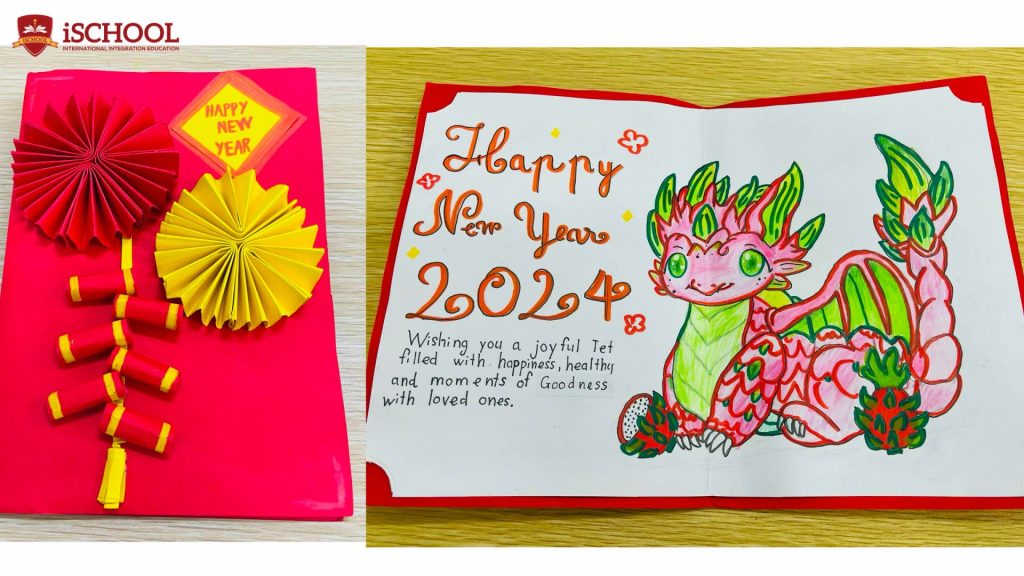 iSCHOOL
INTERNATIONAL INTEGRATION EDUCATION
iSCHOOL
HAPPY
NEW
YEAR
Happy
New Year
2024
Wishing you a joyful Tet
filled with happiness, healthy
and moments of Goodness
with loved ones.